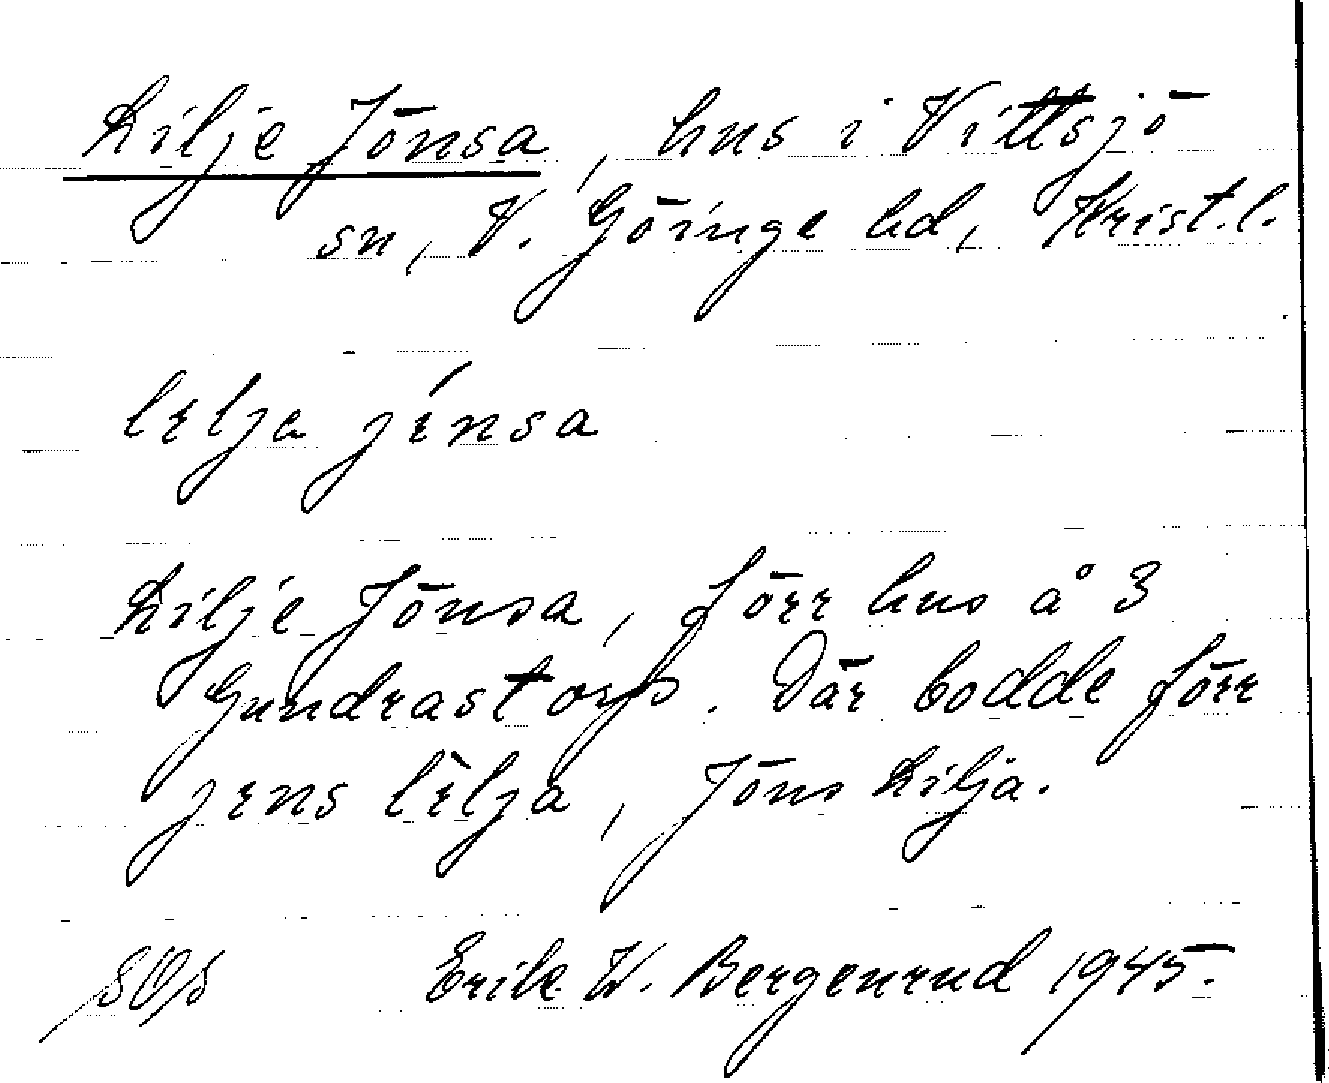 Lilje Jönsa, hus i Vittsjö
sn, V. Göinge hd, Krist.l.
lelja jénsa
Lilje Jönsa, förr hus å 3
Gundrastorp. Där bodde förr
jens lèlja, Jöns Lilja.
SOS Erik W. Bergenrud 1945.